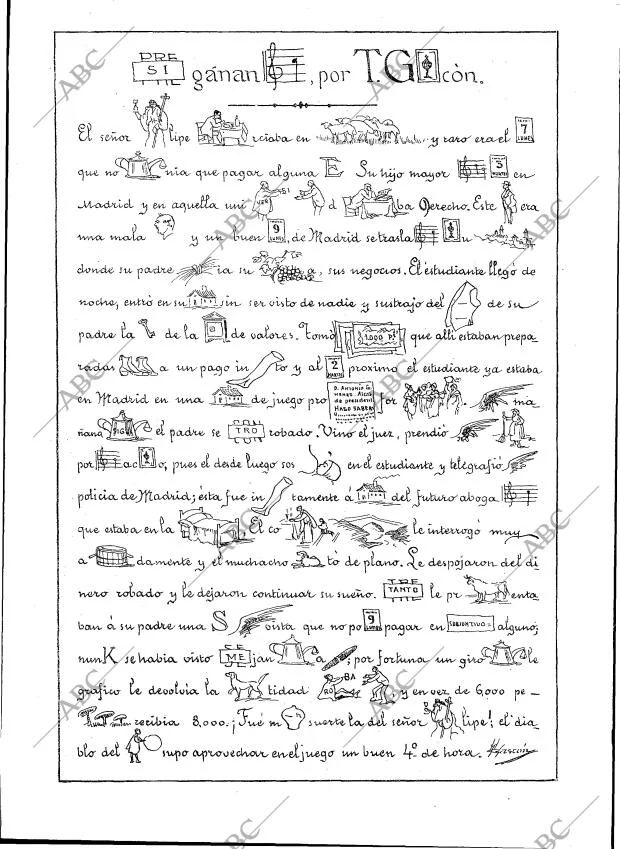 PRE SI PRE gánan, por T.G cón.
El señor lipe rciaba en y raro era el 7 LUNES
que no nia que pagar alguna E Su hijo mayor 3 MARTES en
Madrid y en aquella uni VER SI d ba Derecho. Este era
una mala y un buen 9, de Madrid se trasla u
donde su padre ia su a, sus negocios. El estudiante llegó de
noche, entró en su sin ser visto de nadie y sustrajo del de su
padre la de la de valores. Tomó 1.000 Ps que alli estaban prepa-
radas a un pago in to y al 2 MARTES proximo el estudiante ya estaba
en Madrid en una de juego pro D. ANTONIO HAGO SABER por ma
ñana SIGUI el padre se TRO robado. Vino el juez, prendió
por ac o, pues el desde luego sos en el estudiante y telegrafió
policia de Madrid; ésta fue in tamente á del futuro aboga
que estaba en la El co le interrogó muy
a damente y el muchacho tó de plano. Le despojaron del di
nero robado y le dejaron continuar su sueño. TRE TANTO le pr enta-
ban á su padre una S vista que no po 9 LUNES pagar en SUBJUNTIVO alguno;
nunK se habia visto ME jan a ; por fortuna un giro le
gráfico le devolvia la tidad RO BA, y en vez de 6,000 pe-
recibia 8,000. ¡Fué m suerte la del señor lipe! el dia-
blo del supo aprovechar en el juego un buen 4º de hora. Gascón
ABC
ABC
ABC
ABC
ABC
ABC
ABC
ABC
ABC
ABC
ABC
ABC